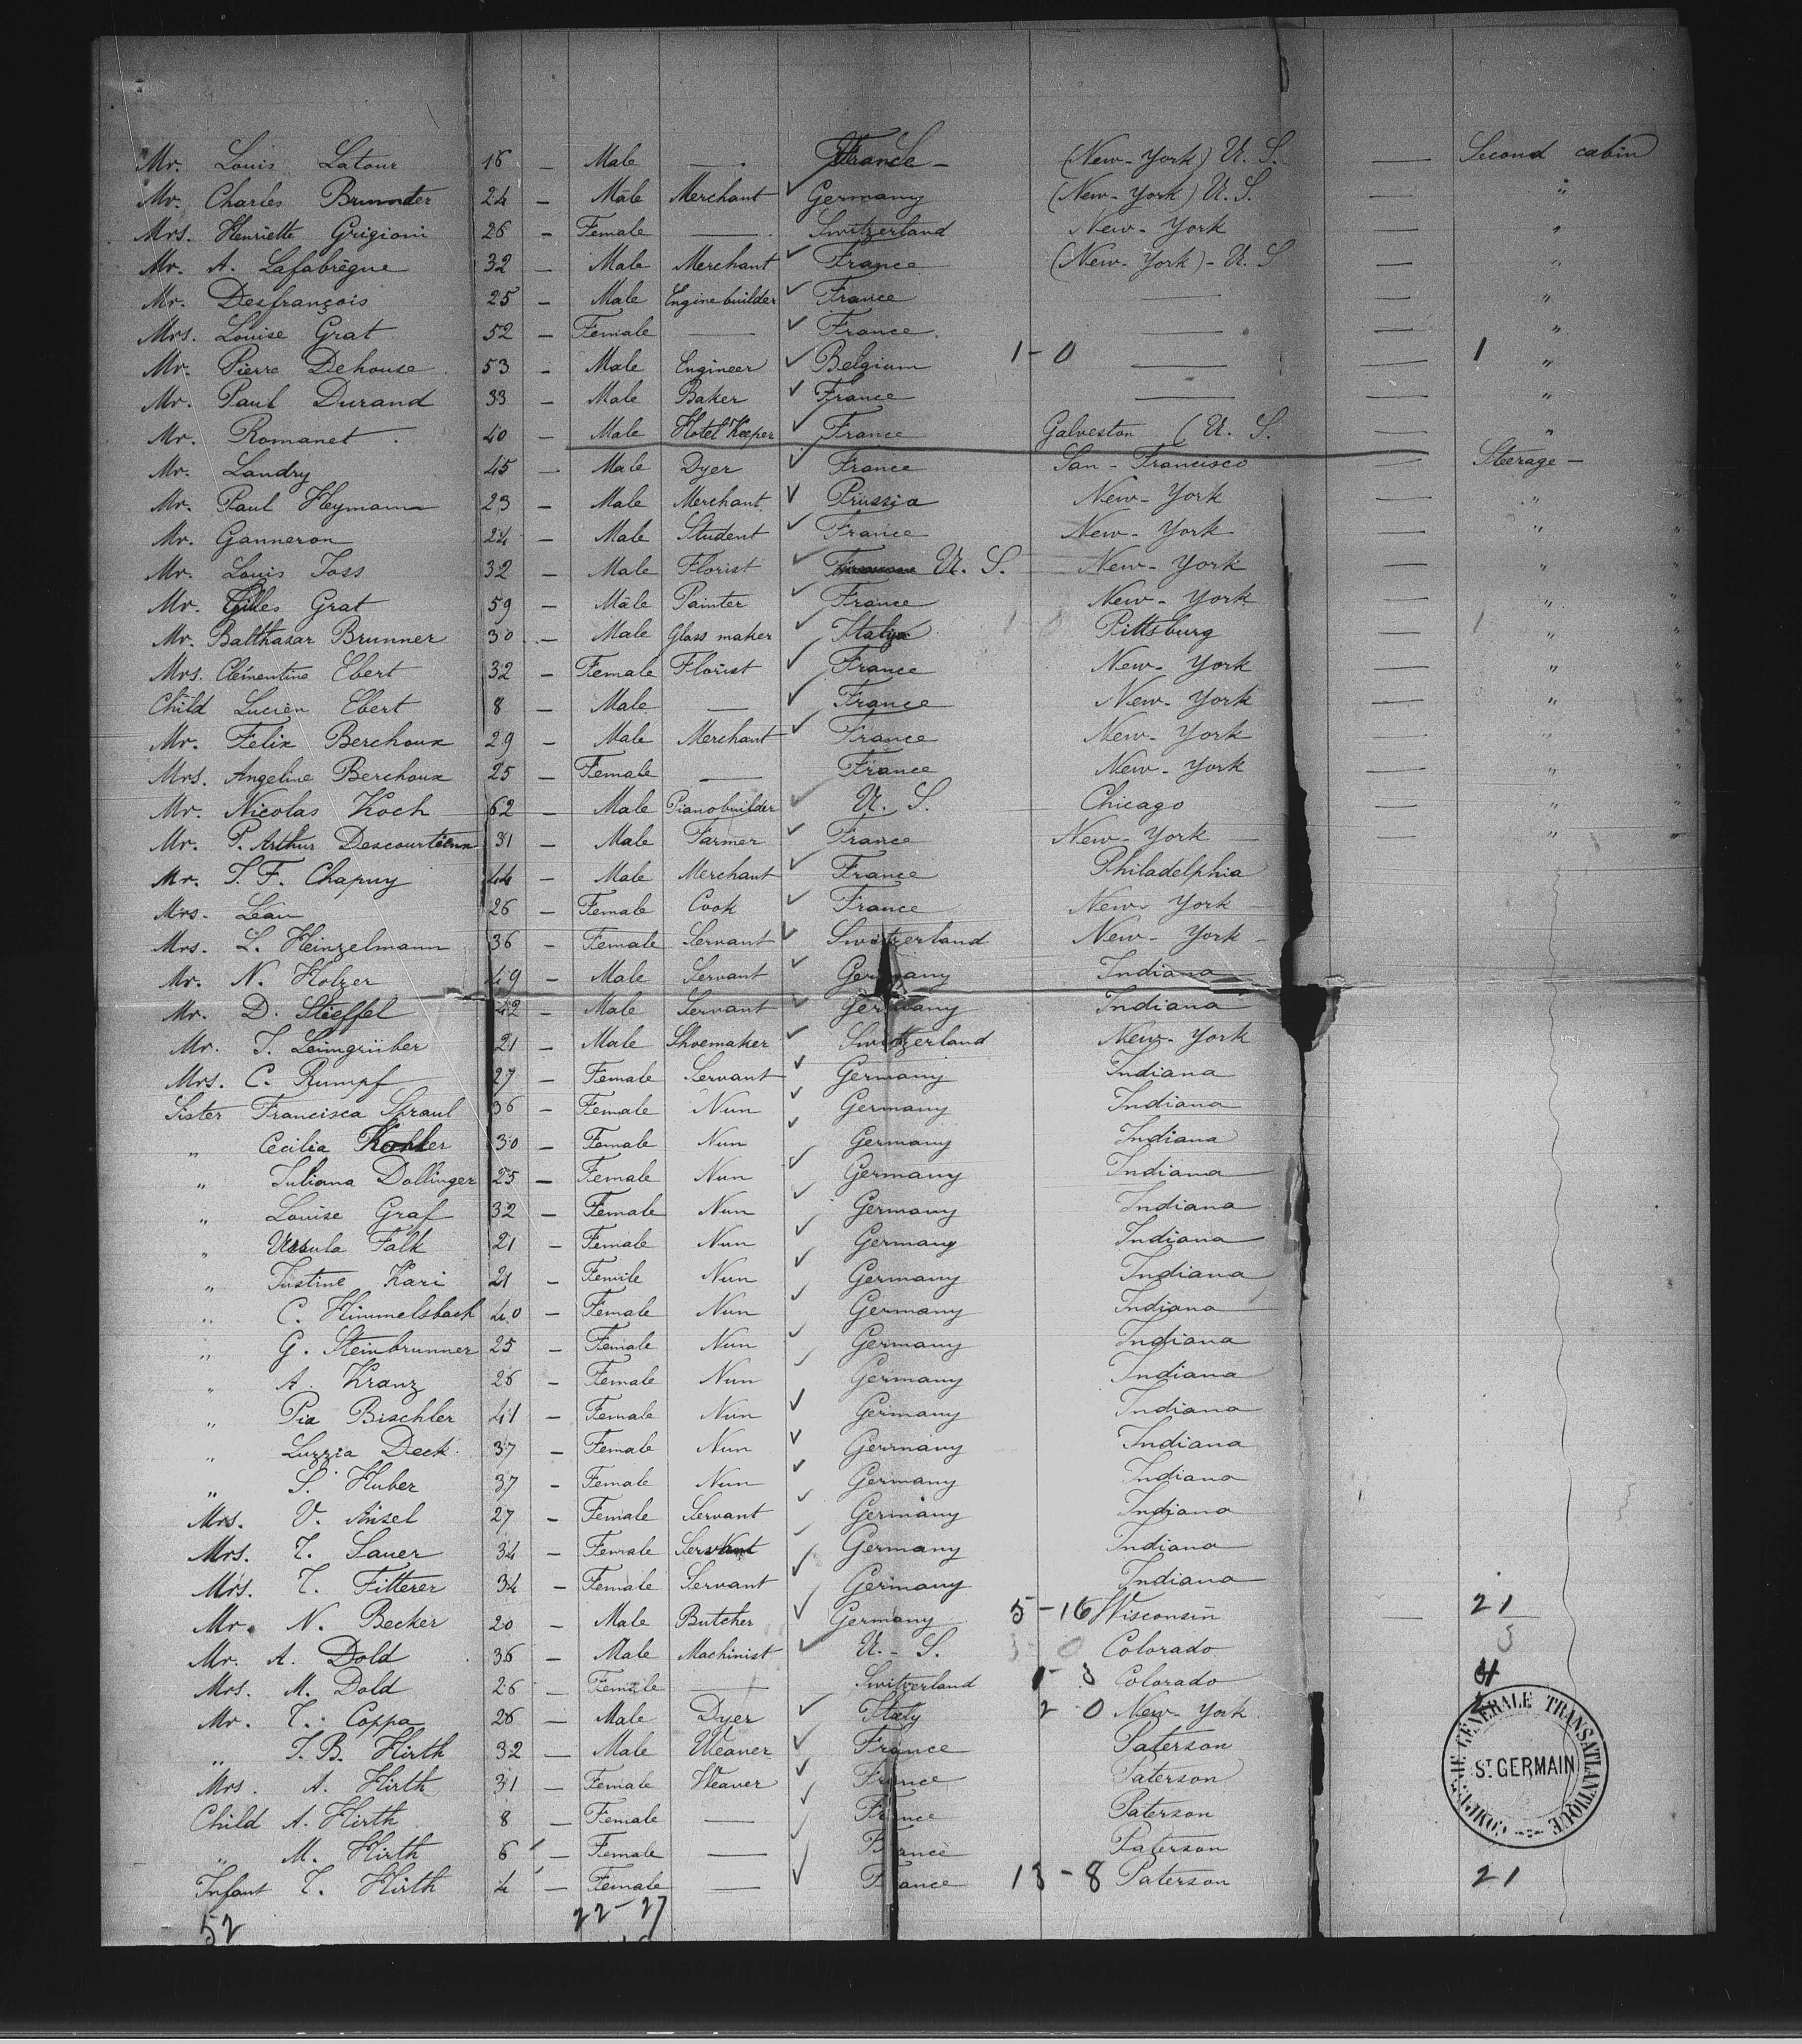 Mr. Louis Latour 16 — Male — France — (New-York) U. S. — Second cabin
Mr. Charles Brunnder 24 — Male Merchant ✓ Germany (New-York) U. S. — "
Mrs. Henriette Grigioni 26 — Female — Switzerland New-York — "
Mr. A. Lafabrègue 32 — Male Merchant ✓ France (New-York) - U. S — "
Mr. Desfrançois 25 — Male Engine builder ✓ France — — "
Mrs. Louise Grat 52 — Female — ✓ France — — "
Mr. Pierre Dehouse 53 — Male Engineer ✓ Belgium 1-0 — — 1 "
Mr. Paul Durand 33 — Male Baker ✓ France — — "
Mr. Romanet 40 — Male Hotel Keeper ✓ France Galveston (U. S. — "
Mr. Landry 45 — Male Dyer ✓ France San-Francisco — Steerage —
Mr. Paul Heymann 23 — Male Merchant ✓ Prussia New-York — "
Mr. Ganneron 24 — Male Student ✓ France New-York — "
Mr. Louis Joss 32 — Male Florist ✓ U. S. New-York — "
Mr. Gilles Grat 59 — Male Painter ✓ France New-York — "
Mr. Balthasar Brunner 30 — Male Glass maker ✓ Italy Pittsburg — "
Mrs. Clémentine Ebert 32 — Female Florist ✓ France New-York — "
Child Lucien Ebert 8 — Male — ✓ France New-York — "
Mr. Felix Berchoux 29 — Male Merchant ✓ France New-York — "
Mrs. Angeline Berchoux 25 — Female — France New-York — "
Mr. Nicolas Koch 62 — Male Pianobuilder ✓ U. S. Chicago — "
Mr. P. Arthur Descourtieux 31 — Male Farmer ✓ France New-York — "
Mr. J. F. Chapuy 44 — Male Merchant ✓ France Philadelphia
Mrs. Léan 26 — Female Cook ✓ France New-York
Mrs. L. Heinzelmann 36 — Female Servant ✓ Switzerland New-York
Mr. N. Holzer 49 — Male Servant ✓ Germany Indiana
Mr. D. Stieffel 42 — Male Servant ✓ Germany Indiana
Mr. J. Leimgrüber 21 — Male Shoemaker ✓ Switzerland New-York
Mrs. C. Rumpf 27 — Female Servant ✓ Germany Indiana
Sister Francisca Spraul 36 — Female Nun ✓ Germany Indiana
" Cecilia Kohler 30 — Female Nun ✓ Germany Indiana
" Juliana Dollinger 25 — Female Nun ✓ Germany Indiana
" Louise Graf 32 — Female Nun ✓ Germany Indiana
" Ursula Falk 21 — Female Nun ✓ Germany Indiana
" Justine Kari 21 — Female Nun ✓ Germany Indiana
" C. Himmelsbach 40 — Female Nun ✓ Germany Indiana
" G. Steinbrunner 25 — Female Nun ✓ Germany Indiana
" A. Kranz 26 — Female Nun ✓ Germany Indiana
" Pia Bischler 41 — Female Nun ✓ Germany Indiana
" Luzzia Deck 37 — Female Nun ✓ Germany Indiana
" S. Huber 37 — Female Nun ✓ Germany Indiana
Mrs. V. Ansel 27 — Female Servant ✓ Germany Indiana
Mrs. T. Sauer 34 — Female Servant ✓ Germany Indiana
Mrs. T. Fitterer 34 — Female Servant ✓ Germany Indiana
Mr. N. Becker 20 — Male Butcher ✓ Germany 5-16 Wisconsin 21
Mr. A. Dold 36 — Male Machinist ✓ U. - S. 3 0 Colorado 3
Mrs. M. Dold 26 — Female — Switzerland 1-3 Colorado 4
Mr. T. Coppa 26 — Male Dyer ✓ Italy 2 0 New-York
" J. B. Hirth 32 — Male Weaver ✓ France Paterson
Mrs. A. Hirth 31 — Female Weaver ✓ France Paterson
Child A. Hirth 8 — Female — ✓ France Paterson
" M. Hirth 6 — Female — ✓ France Paterson
Infant T. Hirth 4 — Female — ✓ France 13-8 Paterson 21
52 22-27
COMPAGNIE GÉNÉRALE TRANSATLANTIQUE
ST. GERMAIN